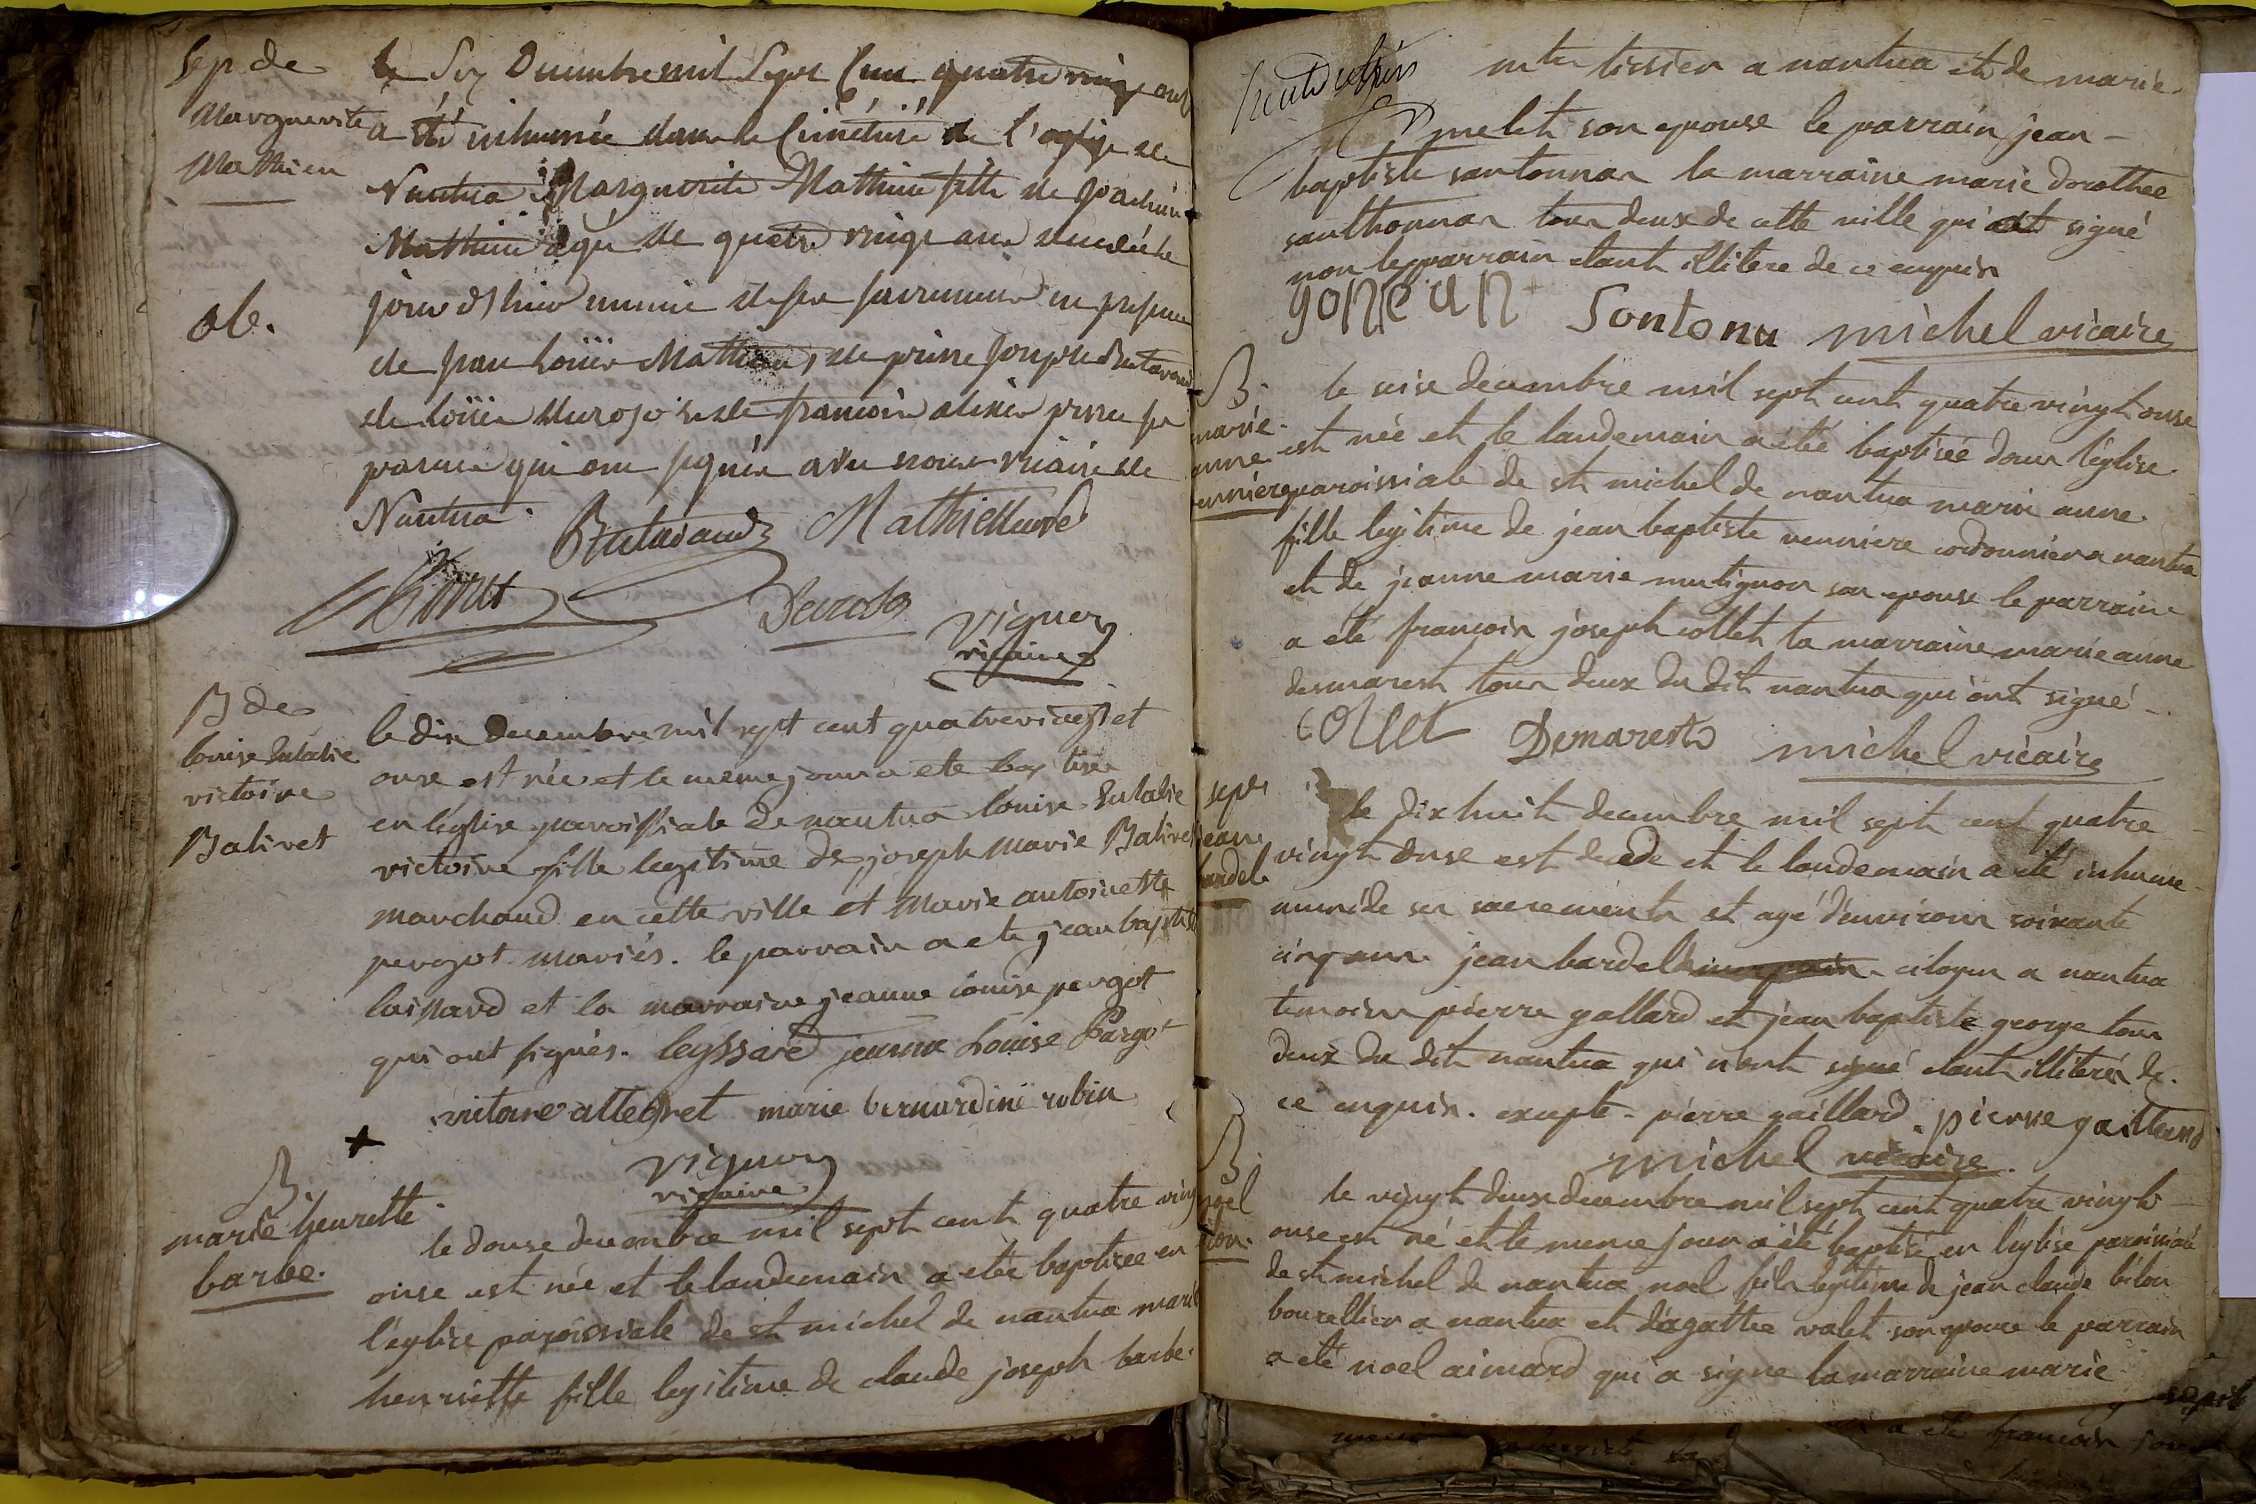 Sep de
Marguerite
Mathieu
ob.
le Six Decembre mil Sept Cent quatre vingt onze
a été inhumée dans le Cimétiére de l'eglise de
Nantua Marguerite Mathieu fille de Joachim
Mathieu agée de quatre vingt ans decedée le
jour d'hier munie de ses sacremens en presence
de Jean Loüis Mathieu, de pierre Joseph Butavand
de Loüis Durosos de francois
parens qui ont signés avec nous vicaire de
Nantua.
Butavand Mathieu
Durosos
Vignon
vicaire
B de
louise Eulalie
victoire
Balivet
le dix Decembre mil sept cent quatrevingt et
onze est née et le meme jour a ete baptisée
en l'eglise parroissiale de nantua louise Eulalie
victoire fille legitime de joseph marie Balivet
marchand en cette ville et Marie antoinette
pergot mariés. le parrain a ete jean baptiste
laissard et la marraine jeanne louise pergot
qui ont signés. leyssard jeanne Louise Pargot
victoire allegret marie bernardine robin
Vignon
vicaire
B.
marie henrette
barbe.
le douse decembre mil sept cent quatre vingt
onse est née et le landemain a etée baptisée en
l'eglise paroissiale de st michel de nantua marie
henriette fille legitime de claude joseph barbe.
mtre tissier a nantua et de marie
melet son epouse le parrain jean
baptiste santonnar la marraine marie dorothée
santhonnar tous deux de cette ville qui ont signé
non le parrain etant illitere de ce enquis
Sontona michel vicaire
B.
marie
anne
venniere
le seise decembre mil sept cent quatre vingt onse
est née et le landemain a eté baptisée dans l'église
paroissiale de st michel de nantua marie anne
fille legitime de jean baptiste venniere cordonnier a nantua
et de jeanne marie mutignon son epouse le parrain
a été francois joseph collet la marraine marie anne
desmarest tous deux du dit nantua qui ont signé
collet Demarest michel vicaire
sepr
jean
bardel
le dix huit decembre mil sept cent quatre
vingt onse est decede et le landemain a été inhumé
muni de ses sacrements et agé d'environs soixante
cinq ans jean bardel citoyen a nantua
temoins pierre gallard et jean baptiste george tous
deux du dit nantua qui n'ont signé etant illiterés de
ce enquis. excepte pierre gaillard. pierre gaillard
michel vicaire
B.
noel
le vingt deux decembre mil sept cent quatre vingt
onse est né et le meme jour a été baptisé en l'eglise paroissiale
de st michel de nantua noel fils legitime de jean claude
bourellier a nantua et d'agathe valet son epouse le parrain
a eté noel aimard qui a signe la marraine marie